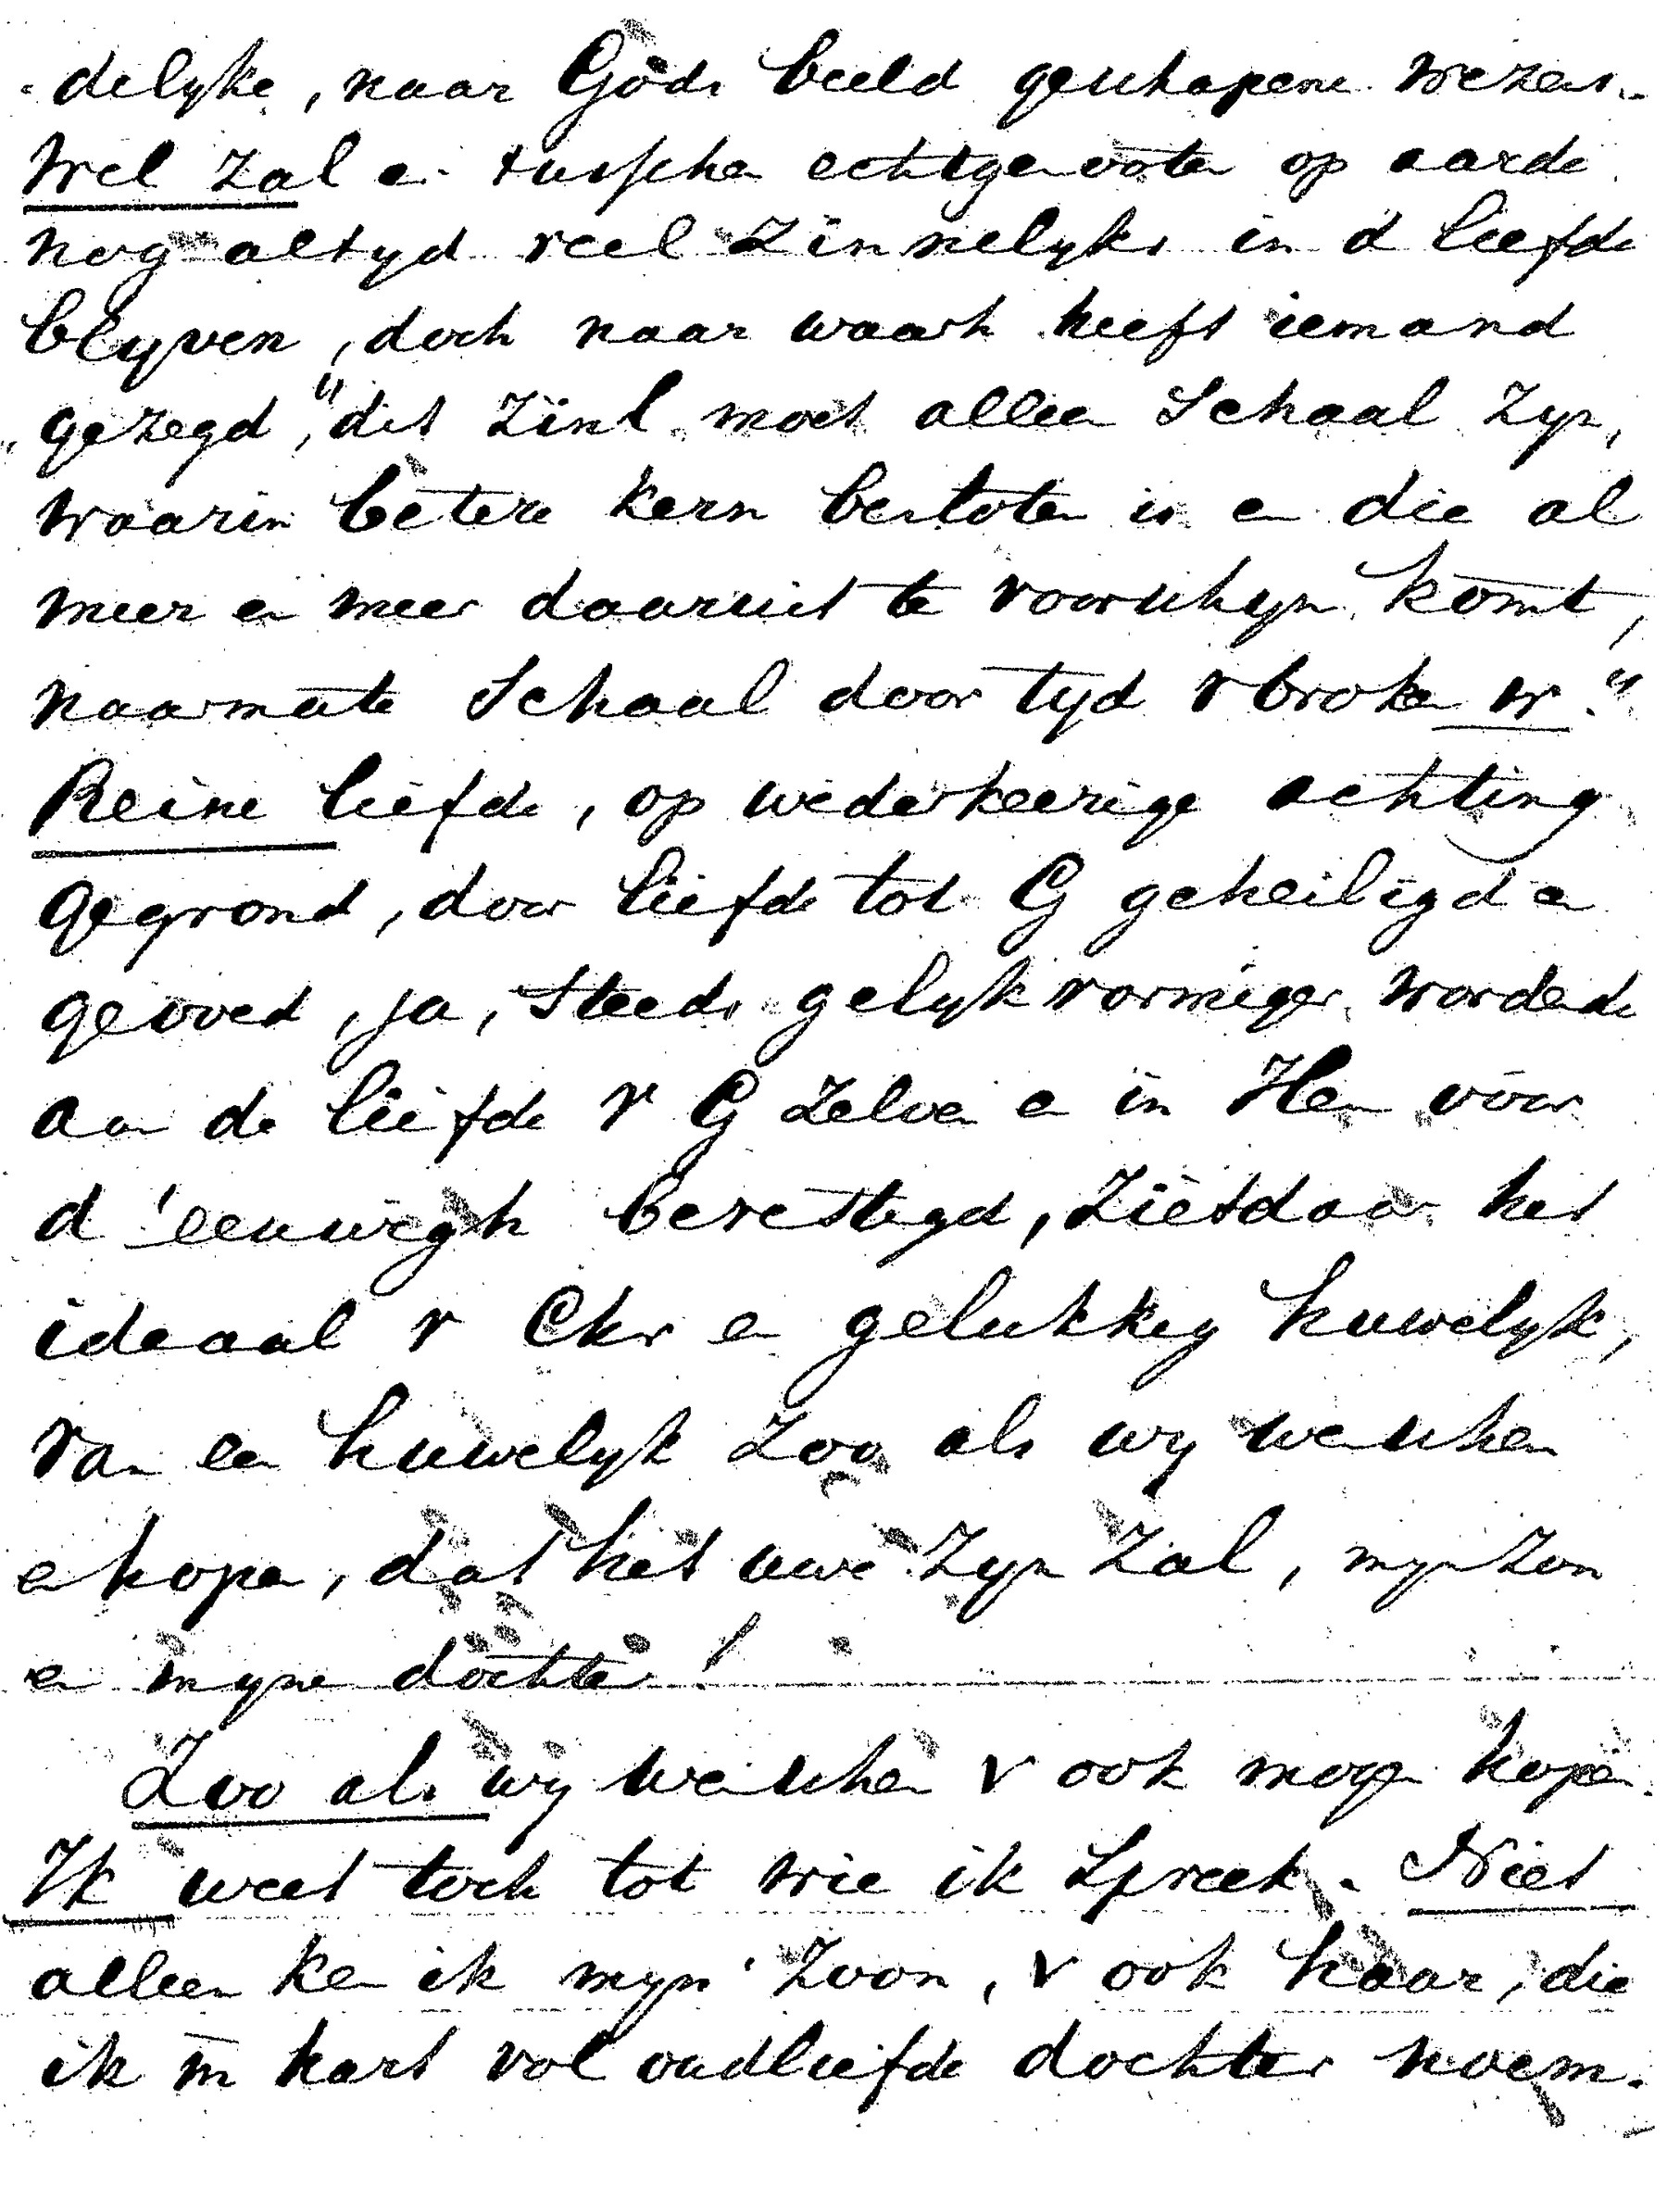 delyke, naar Gods beeld geschapene wezens.
Wel zal er tusschen echtgenooten op aarde
nog altyd veel zinnelyks in d liefde
blyven, doch naar waarh heeft iemand
gezegd, "dit zinl. moet alleen Schaal zyn,
waarin betere kern besloten is en die al
meer en meer daaruit te voorschyn komt,
naarmate Schaal door tyd v broken w."
Reine liefde, op wederkeerige achting
gegrond, door liefde tot G geheiligd en
gevoed, ja, steeds gelykvormiger wordende
aan de liefde v G zelven en in Hem voor
d' eeuwigh bevestigd, ziedaar het
ideaal v Chr en gelukkig huwelyk,
van een huwelyk zoo als wy wenschen
en hopen, dat het uwe zyn zal, myn zoon
en myne dochter!
Zoo als wy wenschen v ook mogen hopen.
Ik weet toch tot wie ik spreek. Niet
alleen ken ik myn' Zoon, v ook haar, die
ik m hart vol oudliefde dochter noem.